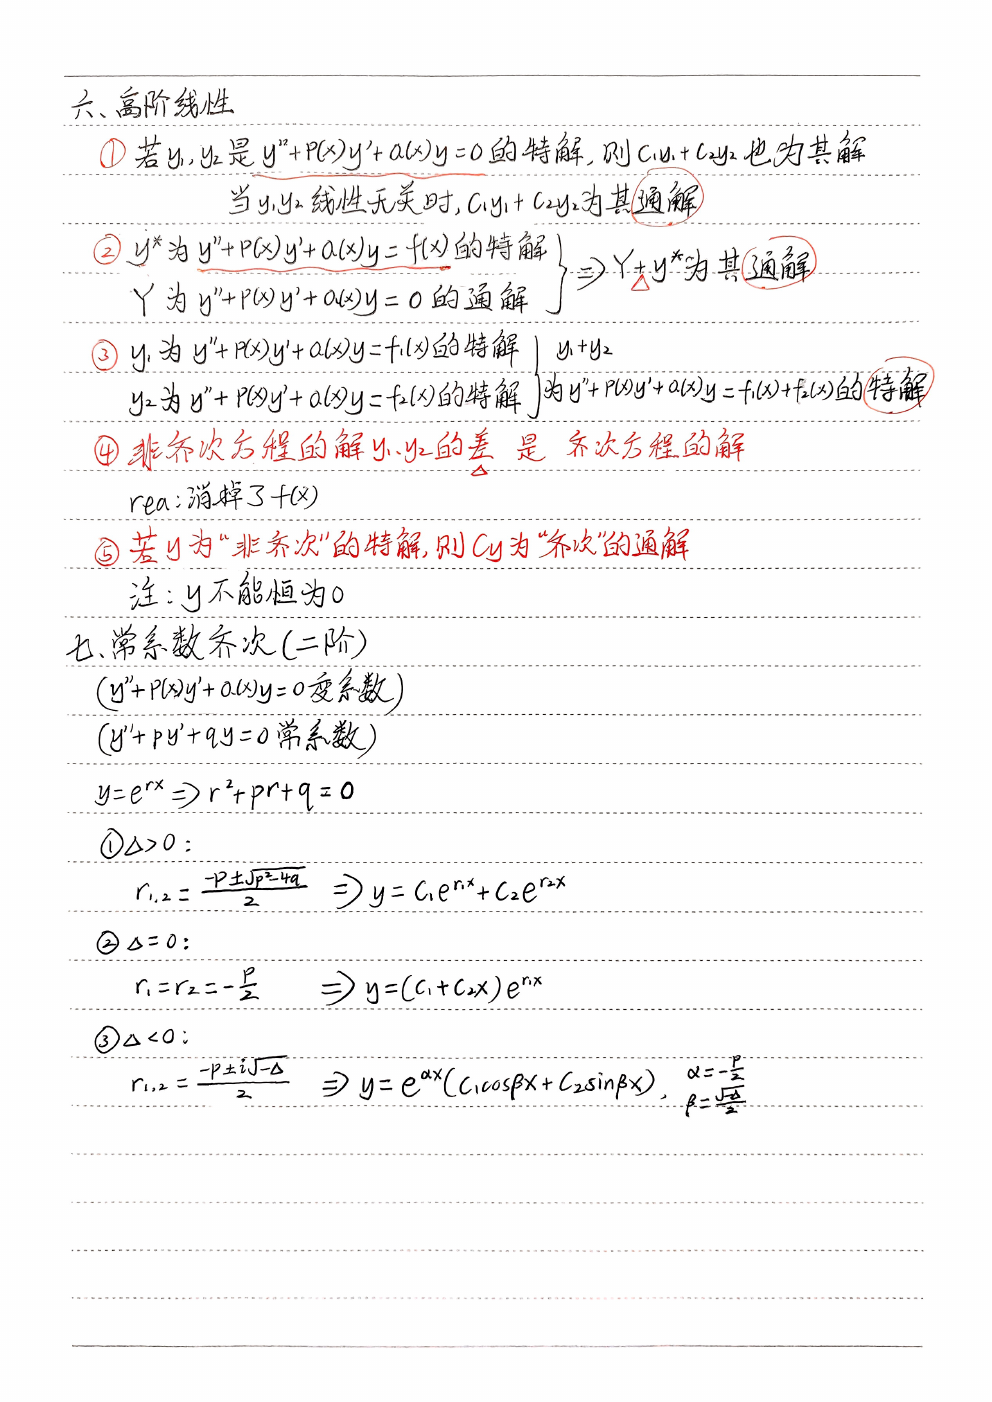 六、高阶线性
① 若y₁,y₂是 y"+P(x)y'+Q(x)y=0的特解,则C₁y₁+C₂y₂也为其解
当y₁y₂线性无关时,C₁y₁+C₂y₂为其通解
② y*为 y"+P(x)y'+Q(x)y=f(x)的特解
Y为 y"+P(x)y'+Q(x)y=0的通解
⇒Y+y*为其通解
③ y₁为 y"+P(x)y'+Q(x)y=f₁(x)的特解 y₁+y₂
y₂为 y"+P(x)y'+Q(x)y=f₂(x)的特解 为y"+P(x)y'+Q(x)y=f₁(x)+f₂(x)的特解
④ 非齐次方程的解y₁、y₂的差 是 齐次方程的解
rea:消掉了f(x)
⑤ 若y为“非齐次”的特解,则Cy为“齐次”的通解
注:y不能恒为0
七、常系数齐次(二阶)
(y"+P(x)y'+Q(x)y=0变系数)
(y"+py'+qy=0常系数)
y=e^{rx}⇒r²+pr+q=0
①△>0:
r₁,₂=(-P±√(p²-4q))/2 ⇒ y=C₁e^{r₁x}+C₂e^{r₂x}
②△=0:
r₁=r₂=-P/2 ⇒ y=(C₁+C₂x)e^{r₁x}
③△<0:
r₁,₂=(-P±i√(-△))/2 ⇒ y=e^{αx}(C₁cosβx+C₂sinβx), α=-P/2
β=√(-△)/2